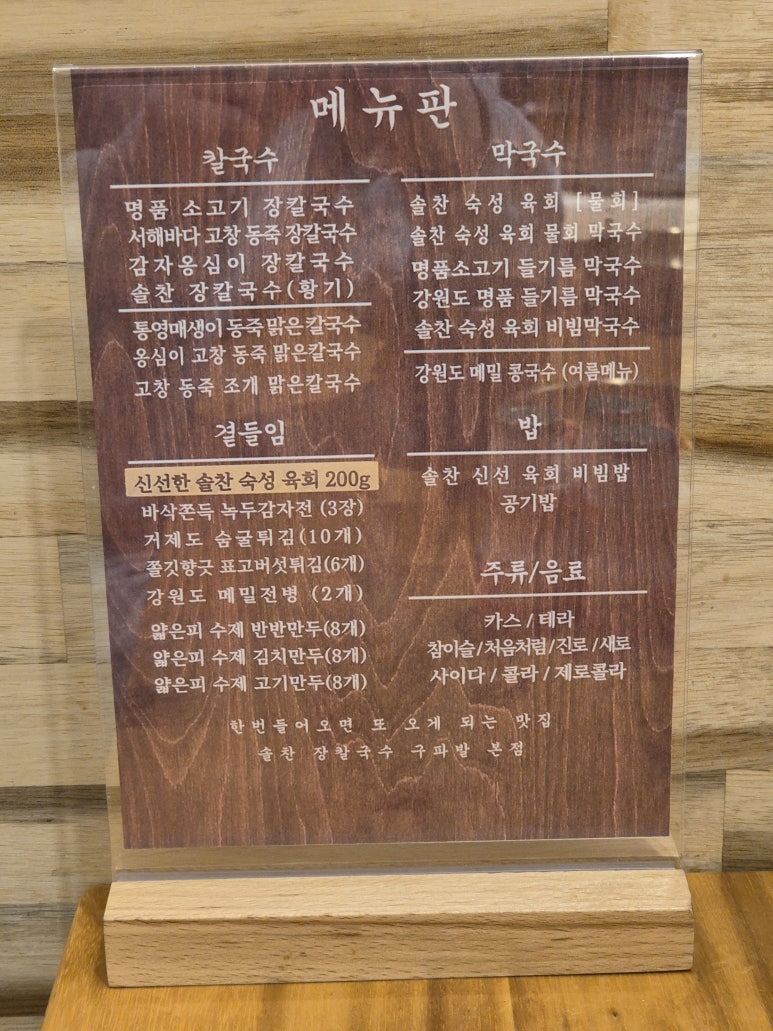 메뉴판
칼국수
명품 소고기 장칼국수
서해바다 고창 동죽 장칼국수
감자옹심이 장칼국수
솔찬 장칼국수(황기)
통영매생이 동죽 맑은칼국수
옹심이 고창 동죽 맑은칼국수
고창 동죽 조개 맑은칼국수
막국수
솔찬 숙성 육회 [물회]
솔찬 숙성 육회 물회 막국수
명품소고기 들기름 막국수
강원도 명품 들기름 막국수
솔찬 숙성 육회 비빔막국수
강원도 메밀 콩국수 (여름메뉴)
곁들임
신선한 솔찬 숙성 육회 200g
바삭쫀득 녹두감자전 (3장)
거제도 숨굴튀김(10개)
쫄깃향긋 표고버섯튀김(6개)
강원도 메밀전병 (2개)
얇은피 수제 반반만두(8개)
얇은피 수제 김치만두(8개)
얇은피 수제 고기만두(8개)
밥
솔찬 신선 육회 비빔밥
공기밥
주류/음료
카스 / 테라
참이슬/처음처럼/진로/새로
사이다 / 콜라 / 제로콜라
한번들어오면 또 오게 되는 맛집
솔찬 장칼국수 구파발 본점